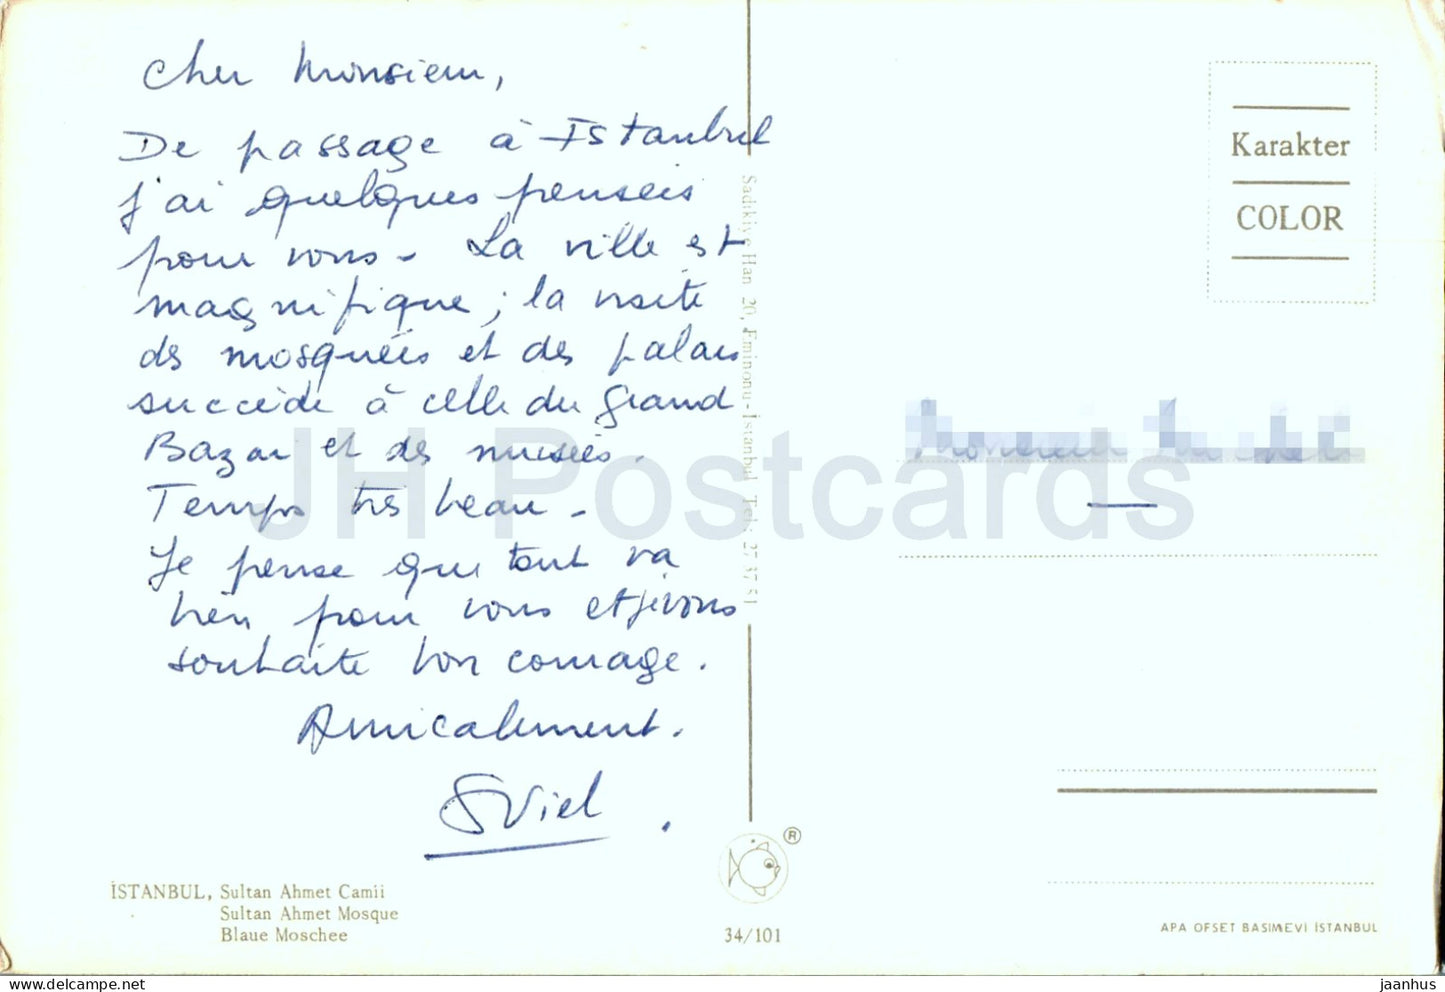 Cher Monsieur,
De passage à Istanbul
j'ai quelques pensées
pour vous. La ville est
magnifique ; la visite
des mosquées et des palais
succède à celle du Grand
Bazar et des musées.
Temps très beau.
Je pense que tout va
bien pour vous et je vous
souhaite bon courage.
Amicalement.
SViel
İSTANBUL, Sultan Ahmet Camii
Sultan Ahmet Mosque
Blaue Moschee
Sadıkiye Han 20, Eminonu - İstanbul Tel : 27 37 51
®
34/101
Karakter
COLOR
Monsieur
APA OFSET BASIMEVİ İSTANBUL
JH Postcards
www.delcampe.net
jaanhus